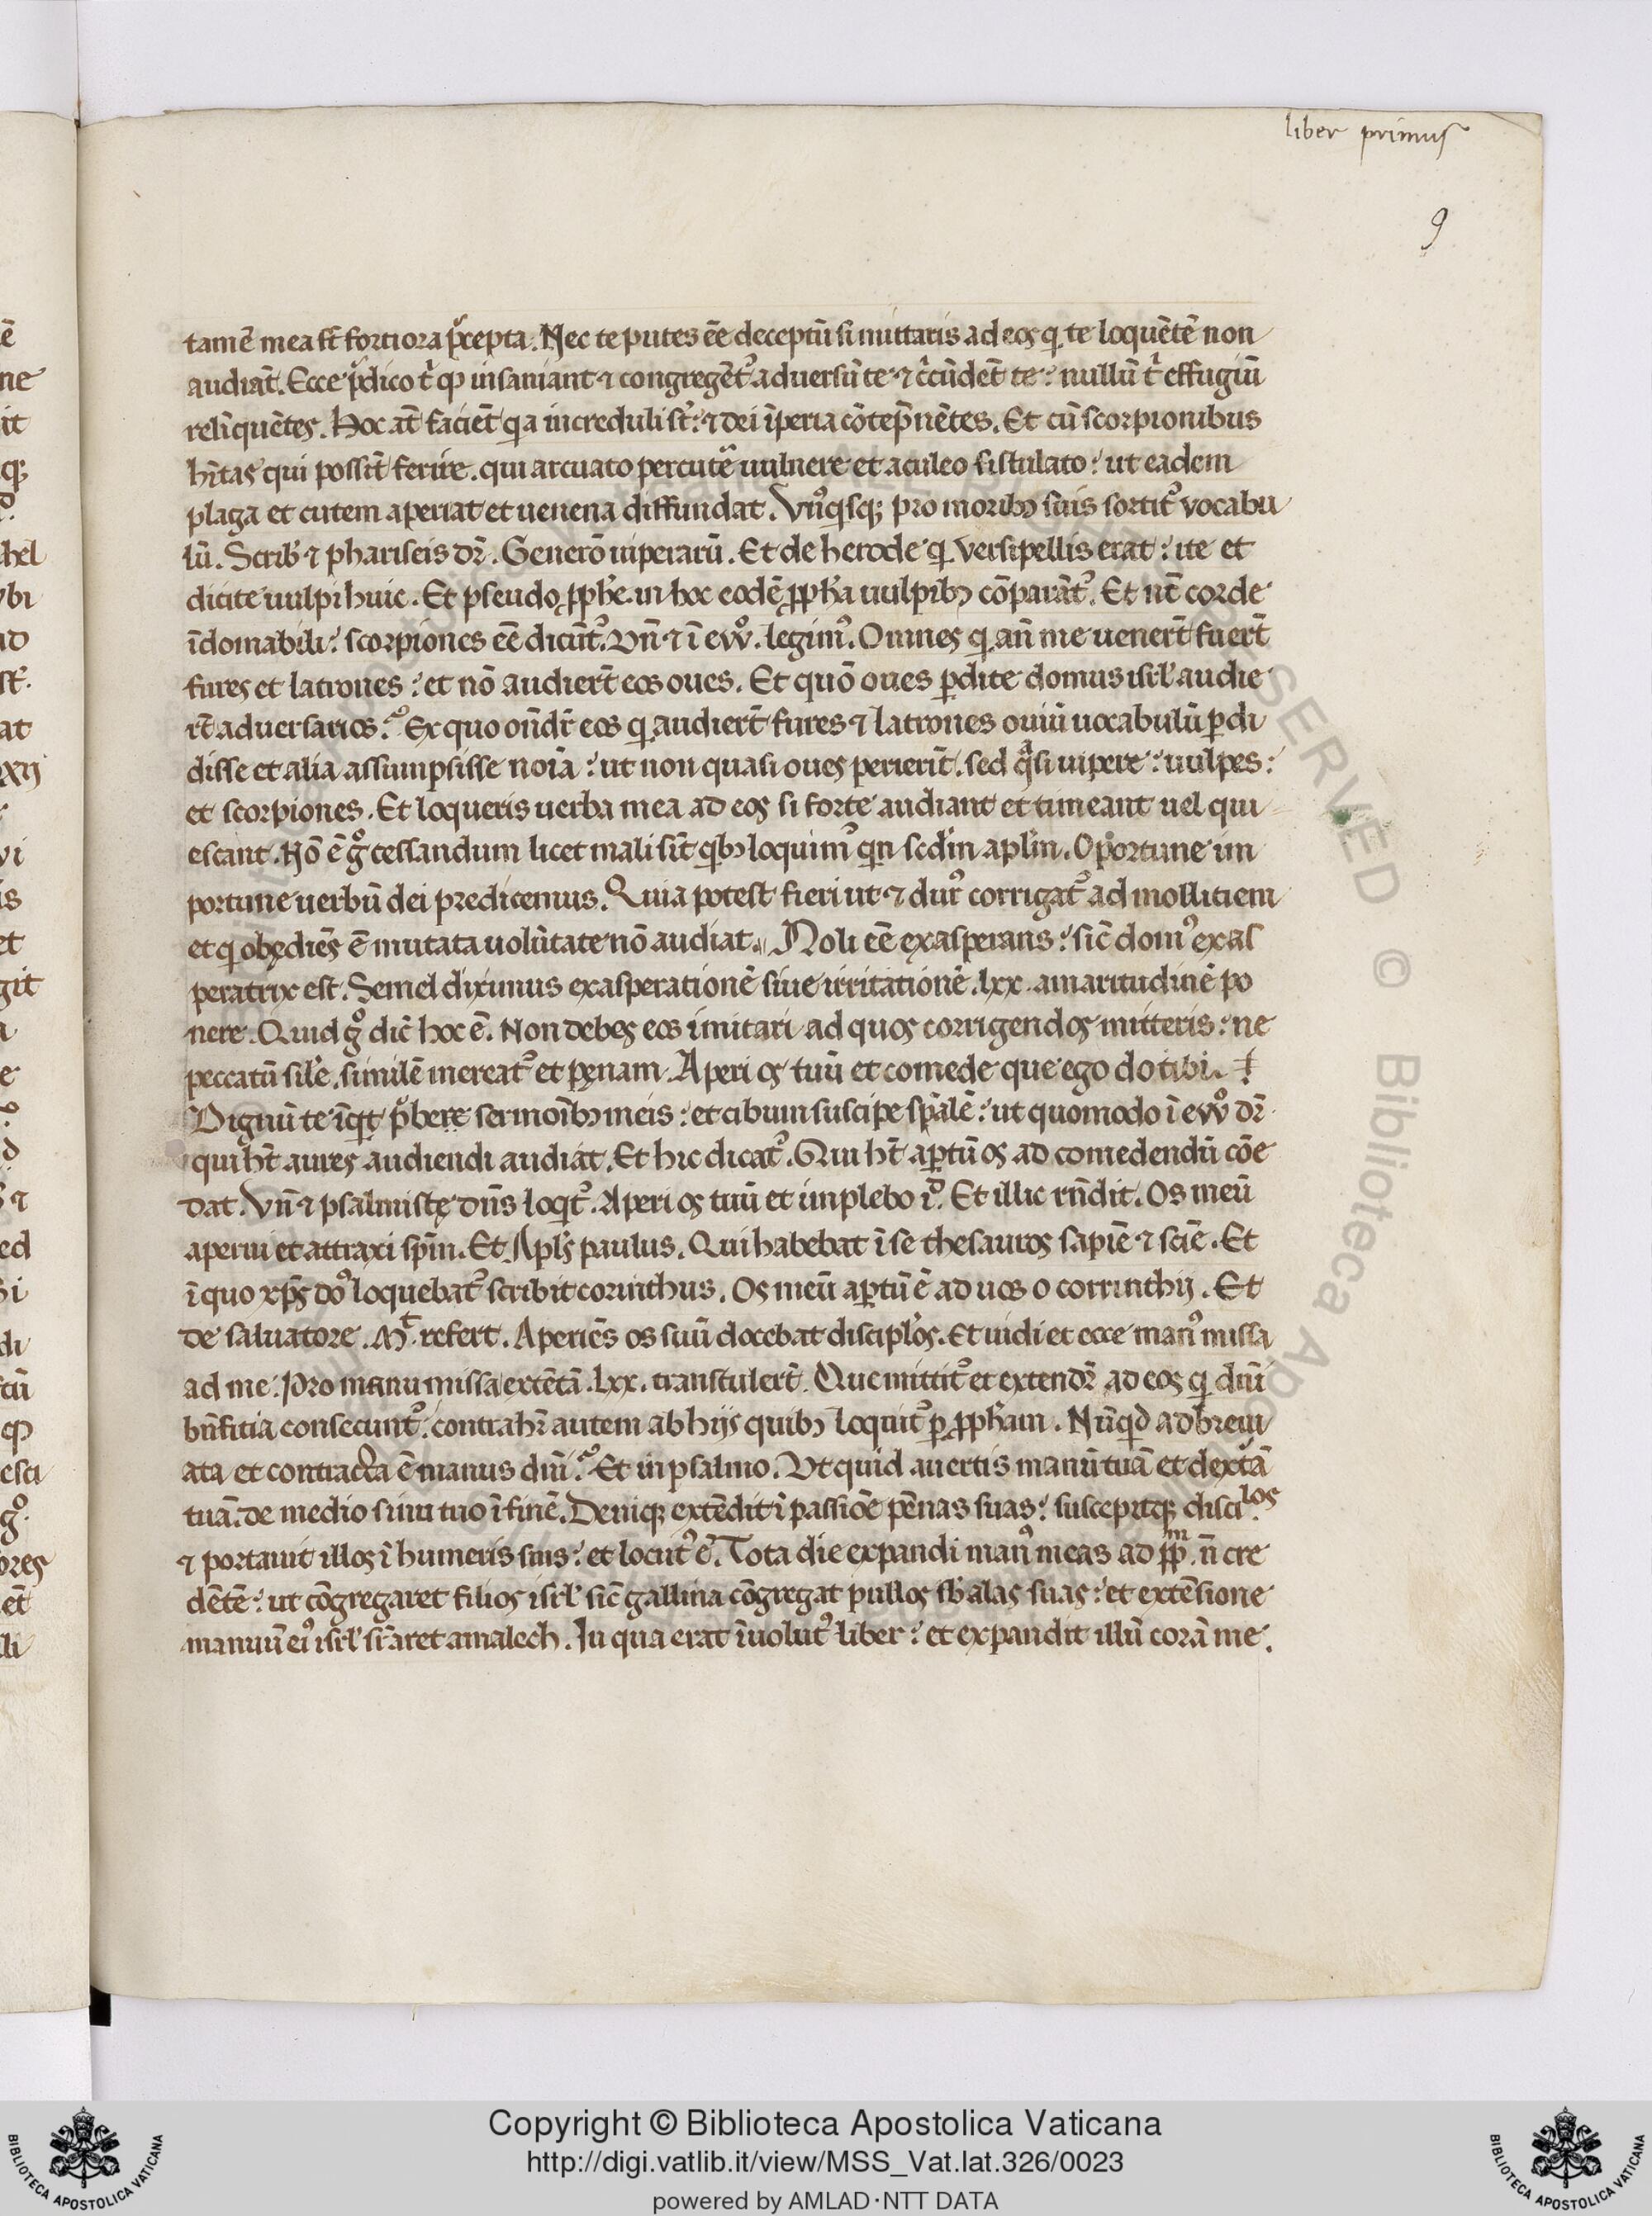 liber primus
9
tamē mea sт̄ fortiora p̄cepta. Nec te putes eē deceptū si mittaris ad eos q te loquētē non
audiāt. Ecce p̄dico t̄ qƿ insaniant ⁊ congregēt᷒ adversū te ⁊ c̄cūdēt te: nullū t̄ effugiū
relīquētes. Hoc āt faciēt q̄a increduli st̄: ⁊ dei īperia cōtep̄nētes. Et cū scorpionibus
h̄itas qui possīt ferire. qui arcuato percutē uulnere et aculeo fistulato: ut eadem
plaga et cutem aperiat et uenena diffundat. Vn᷒qisqꝫ pro moribꝫ suis sortit᷒ vocabu
lū. Scrib̄ ⁊ phariseis dr̄. Generō uiperarū. Et de herode q versipellis erat: ite et
dicite uulpi huic. Et pseudo pph̄e. in hoc eodē pph̄a uulpibꝫ cōparāt᷒. Et nc̄ corde
īdomabili: scorpiones eē dicūt᷒. Vn̄ ⁊ ī evv̊. legim᷒. Omnes q an̄ me uenert̄ fuert̄
fures et latrones: et nō audiert̄ eos oues. Et quō oues ꝑdite domus isrl̄ audie
rt̄ adversarios? Ex quo ondr̄ eos q audiert̄ fures ⁊ latrones ouiū uocabulū ꝑdi
disse et alia assumpsisse noīa: ut non quasi oues perierīt. sed qᵃsi uipere: uulpes:
et scorpiones. Et loqueris uerba mea ad eos si forte audiant et timeant uel qui
escant. Nō ē g̊ cessandum licet mali sīt qibꝫ loquim᷒ qin scd̄m apl̄m. Oportune im
portune uerbū dei predicemus. Quia potest fieri ut ⁊ dur᷒ corrigat᷒ ad mollitiem
et q obędiēs ē mutata volūtate nō audiat. Noli eē exasperans: sic̄ dom᷒ exas
peratrix est. Semel diximus exasperationē siue irritationē. lxx. amaritudinē po
nere. Quid g̊ dic̄ hoc ē. Non debes eos imitari ad quos corrigendos mitteris: ne
peccatū sil̄e. similē mereat᷒ et pęnam. Aperi os tuū et comede que ego do tibi.
Dignū te īqit p̄bere sermoībꝫ meis: et cibum suscipe sp̄alē: ut quomodo ī evv̊ dr̄
qui ht̄ aures audiendi audiat. Et hic dicat᷒. Qui ht̄ aꝑtū os ad comedendū cōe
dat. Vn̄ ⁊ psalmistę dn̄s loqit᷒. Aperi os tuū et implebo iᵈ. Et illic rn̄dit. Os meū
aperui et attraxi sp̄m. Et Apl̄s paulus. Qui habebat ī se thesauros sapiē ⁊ sciē. Et
ī quo xp̄s do᷒ loquebat᷒ scribit corinthus. Os meū aꝑtū ē ad uos o corrinthij. Et
de saluatore. Mᵗ. refert. Aperiēs os suū docebat discipl̄os. Et uidi et ecce man᷒ missa
ad me. Pro manu missa extētā. lxx. transtulert̄. Que mittit᷒ et extendr̄ ad eos q diuī
bn̄fitia consecunt᷒. contrahr̄ autem ab hijs quibꝫ loquit᷒ ꝑ pph̄am. Nūqid adbrevi
ata et contracta ē manus dn̄i? Et in psalmo. Vt quid auertis manū tuā et dextᵃā
tuā. de medio sinu tuo ī finē. Deniqꝫ extēdit ī passiōe pēnas suas: suscepitqꝫ disciˡᵒˢ.
⁊ portauit illos ī humeris suis: et locut᷒ ē. Tota die expandi man᷒ meas ad ppᵐ. n̄ cre
dētē: ut cōgregaret filios isrl̄ sic̄ gallina cōgregat pullos sb̄ alas suas: et extēsione
manuū ei᷒ isrl̄ sr̄aret amalech. In qua erat īuolut᷒ liber: et expandit illū corā me.
Copyright © Biblioteca Apostolica Vaticana
http://digi.vatlib.it/view/MSS_Vat.lat.326/0023
powered by AMLAD·NTT DATA
BIBLIOTECA APOSTOLICA VATICANA
BIBLIOTECA APOSTOLICA VATICANA